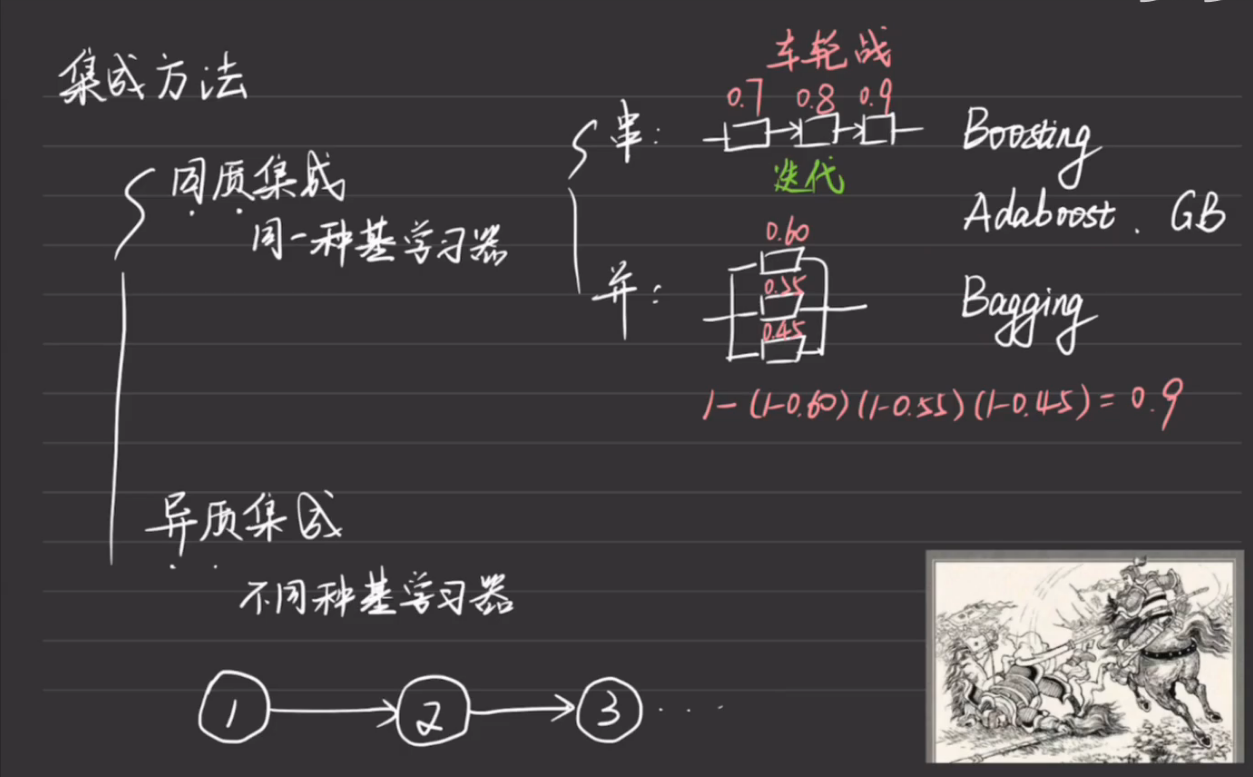 集成方法
同质集成
同一种基学习器
串：
车轮战
0.7 0.8 0.9
迭代
Boosting
Adaboost. GB
并：
0.60
0.55
0.45
Bagging
1-(1-0.60)(1-0.55)(1-0.45)=0.9
异质集成
不同种基学习器
1 2 3 ...